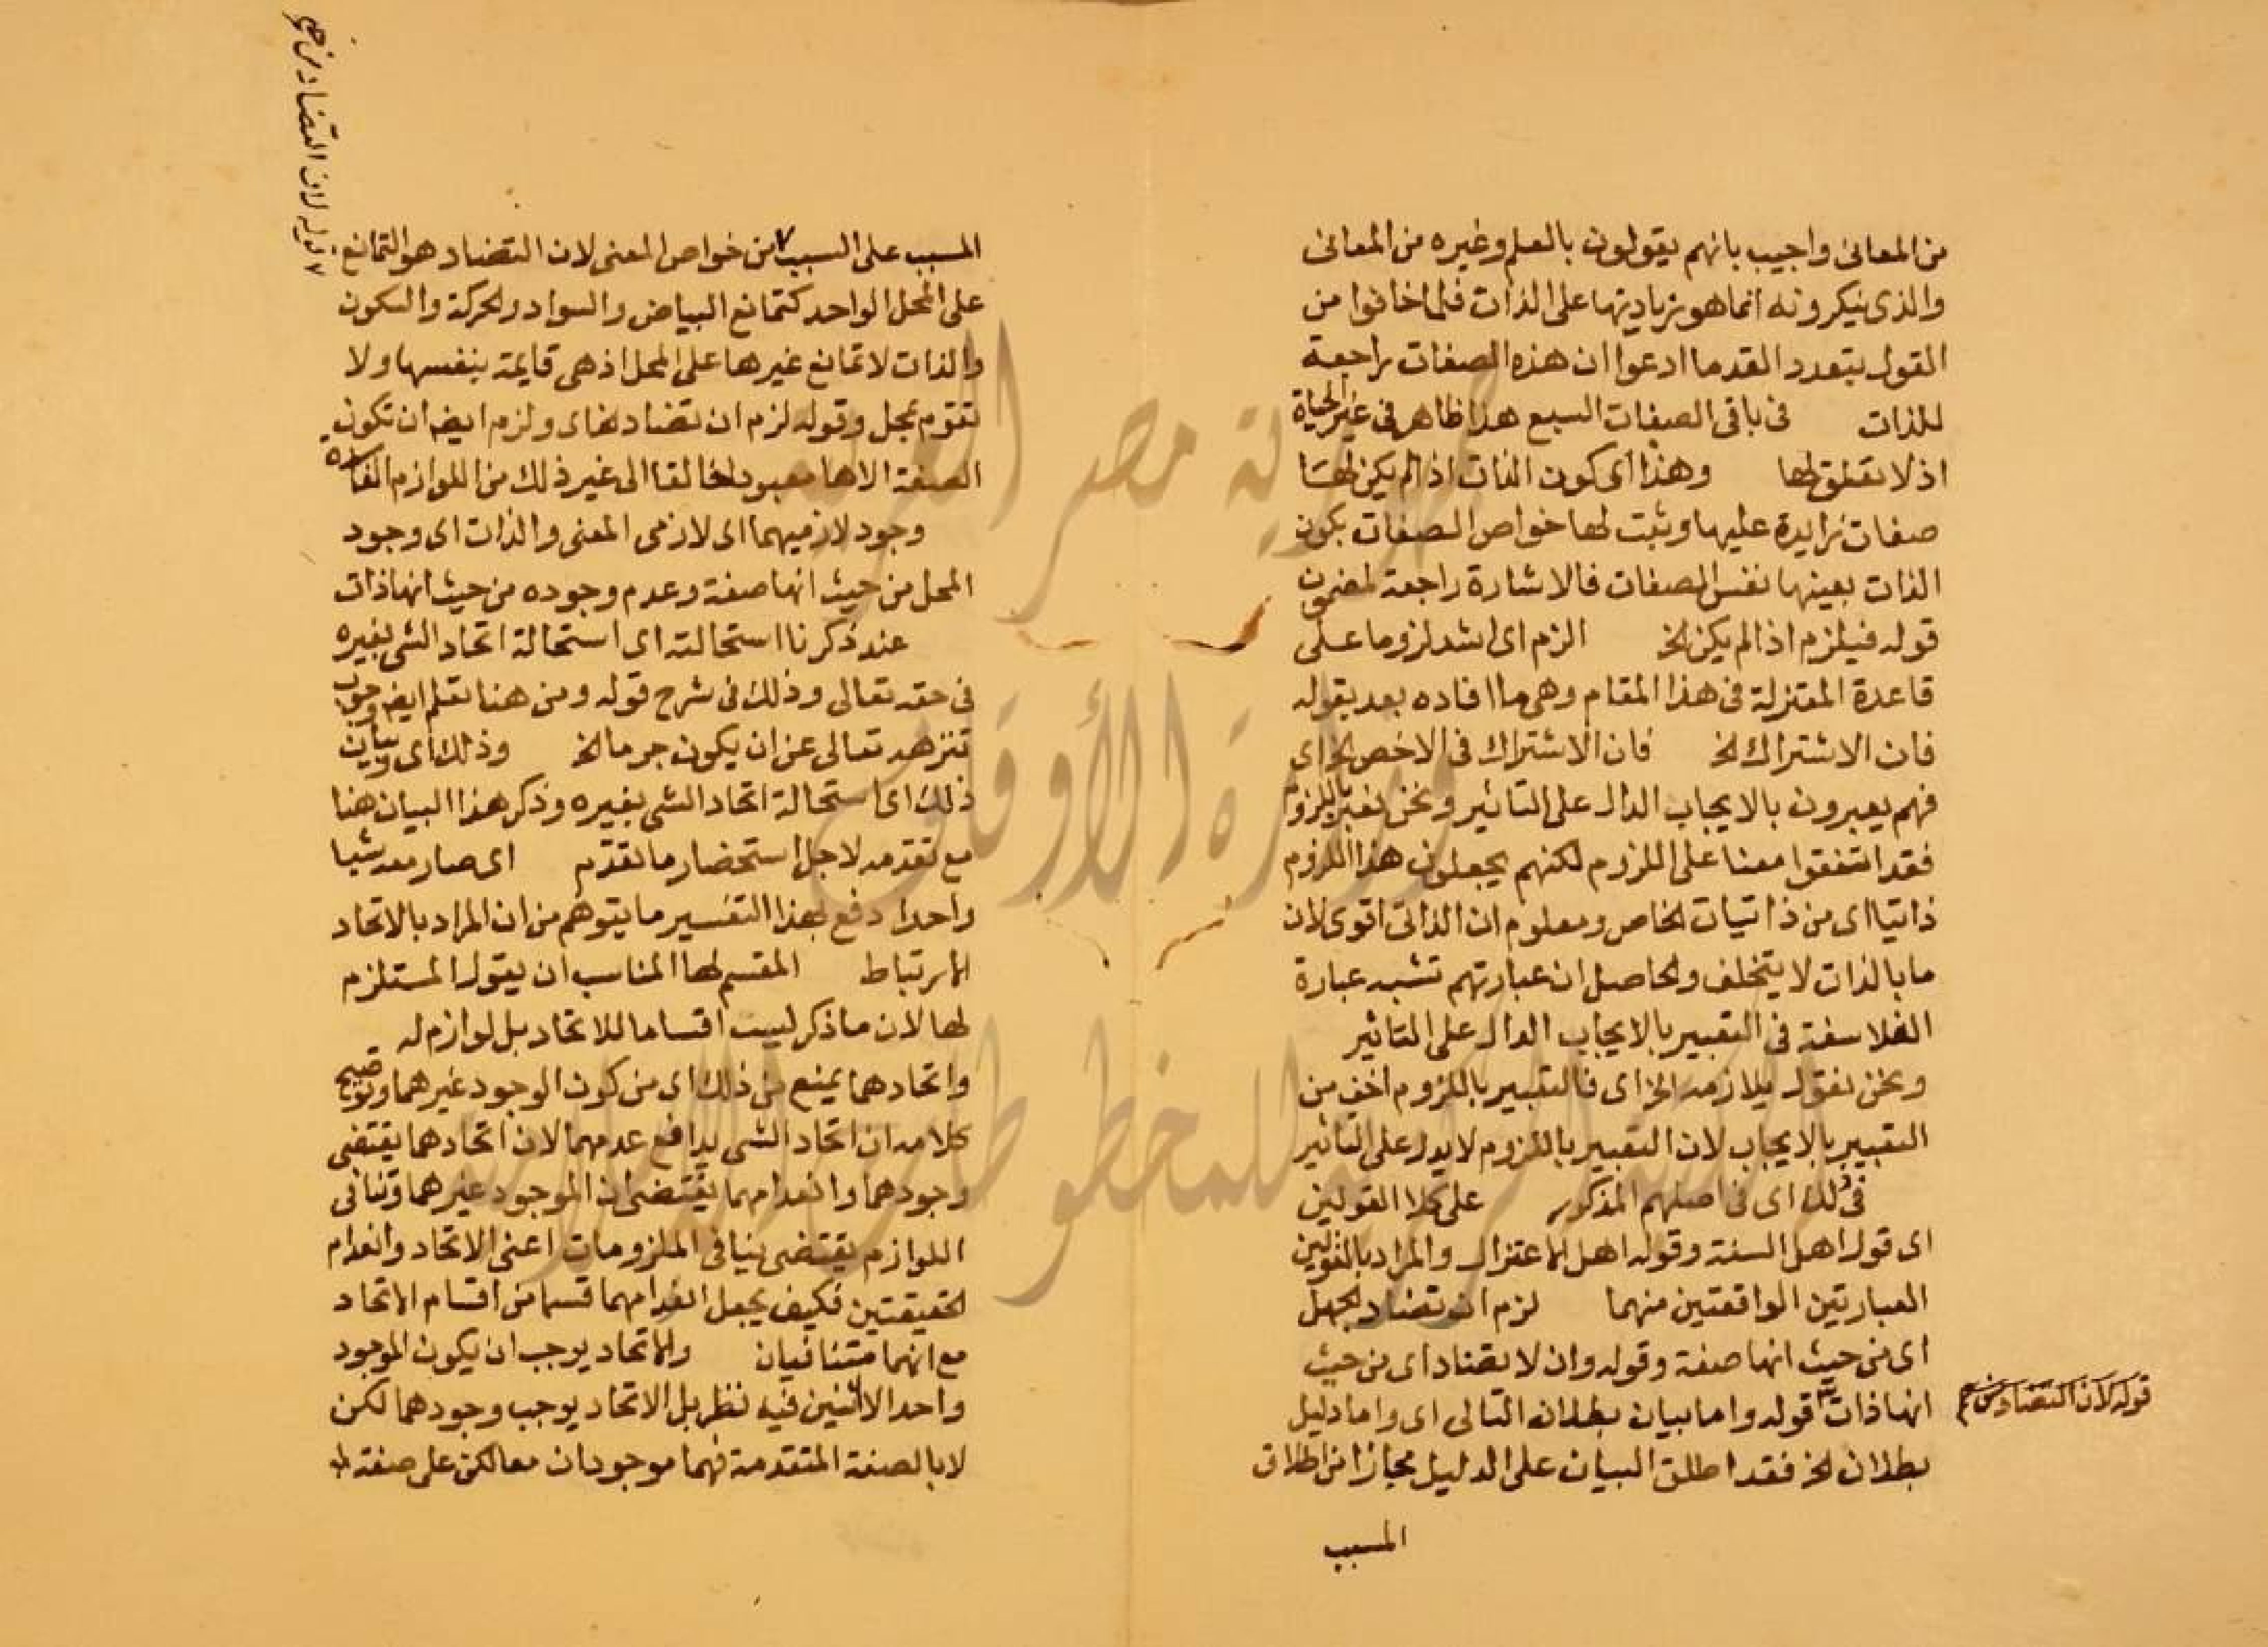 من المعانى واجيب بانهم يقولون بالعلم وغيره من المعانى
والذى ينكرونه انما هو زيادتها على الذات فلما خافوا من
القول بتعدد القدما ادعوا ان هذه الصفات راجعة
للذات فى باقى الصفات السبع هذا ظاهر فى غير الحياة
اذ لا تعلق لها وهذا اى كون الذات اذا لم يكن لها
صفات زايدة عليها وثبت لها خواص الصفات بكون
الذات بعينها نفس الصفات فالاشارة راجعة لمضمون
قوله فيلزم اذا لم يكن الخ الزم اى اشد لزوما على
قاعدة المعتزلة فى هذا المقام وهى ما افاده بعد بقوله
فان الاشتراك الخ فان الاشتراك فى الاخص الخ اى
فهم يعبرون بالايجاب الدال على التاثير ونحن نعبر باللزوم
فقد اتفقوا معنا على اللزوم لكنهم يجعلون هذا اللزوم
ذاتيا اى من ذاتيات الخاص ومعلوم ان الذاتى اقوى لان
ما بالذات لا يتخلف والحاصل ان عبارتهم تشبه عبارة
الفلاسفة فى التعبير بالايجاب الدال على التاثير
ونحن نقول يلازمه الخ اى فالتعبير باللزوم اخف من
التعبير بالايجاب لان التعبير باللزوم لا يدل على التاثير
فى ذلك اى فى اصلهم المذكور على كلا القولين
اى قول اهل السنة وقول اهل الاعتزال والمراد بالقولين
العبارتين الواقعتين منهما لزم ان تضاد الجهل
اى من حيث انها صفة وقوله وان لا تضاد اى من حيث
انها ذات قوله واما بيان بطلان التالى اى واما دليل
بطلان الخ فقد اطلق البيان على الدليل مجازا من اطلاق
المسبب
قوله لان التضاد من
المسبب على السبب ٧ من خواص المعنى لان التضاد هو التمانع
على المحل الواحد كتمانع البياض والسواد والحركة والسكون
والذات لا تمانع غيرها على المحل اذ هى قايمة بنفسها ولا
تقوم بمحل وقوله لزم ان تضاد الخ اى ولزم ايضا ان تكون
الصفة الاها معبودا خالقا الى غير ذلك من اللوازم الفاسدة
وجود لازميهما اى لازمى المعنى والذات اى وجود
المحل من حيث انها صفة وعدم وجوده من حيث انها ذات
عند ذكرنا استحالته اى استحالة اتحاد الشى بغيره
فى حقه تعالى وذلك فى شرح قوله ومن هنا تعلم ايضا وجوب
تنزهه تعالى عن ان يكون جرما الخ وذلك اى وبيان
ذلك اى استحالة اتحاد الشى بغيره وذكر هذا البيان هنا
مع تقدمه لاجل استحضار ما تقدم اى صار معه شيا
واحدا دفع بهذا التفسير ما يتوهم من ان المراد بالاتحاد
الارتباط المقسم لها المناسب ان يقول المستلزم
لها لان ما ذكر ليست اقساما للاتحاد بل لوازم له
واتحادهما يمنع من ذلك اى من كون الوجود غيرهما وتوضيح
كلامه ان اتحاد الشى يدافع عدمهما لان اتحادهما يقتضى
وجودهما وانعدامهما يقتضى ان الموجود غيرهما وتنافى
اللوازم يقتضى تنافى الملزومات اعنى الاتحاد وانعدام
الحقيقتين فكيف يجعل انعدامهما قسما من اقسام الاتحاد
مع انهما متنافيان والاتحاد يوجب ان يكون الموجود
واحدا لا اثنين فيه نظر بل الاتحاد يوجب وجودهما لكن
لا بالصفة المتقدمة فهما موجودان معا لكن على صفة
٧ قوله لان التضاد من
جمهورية مصر العربية
وزارة الأوقاف
المكتبة المركزية للمخطوطات الإسلامية